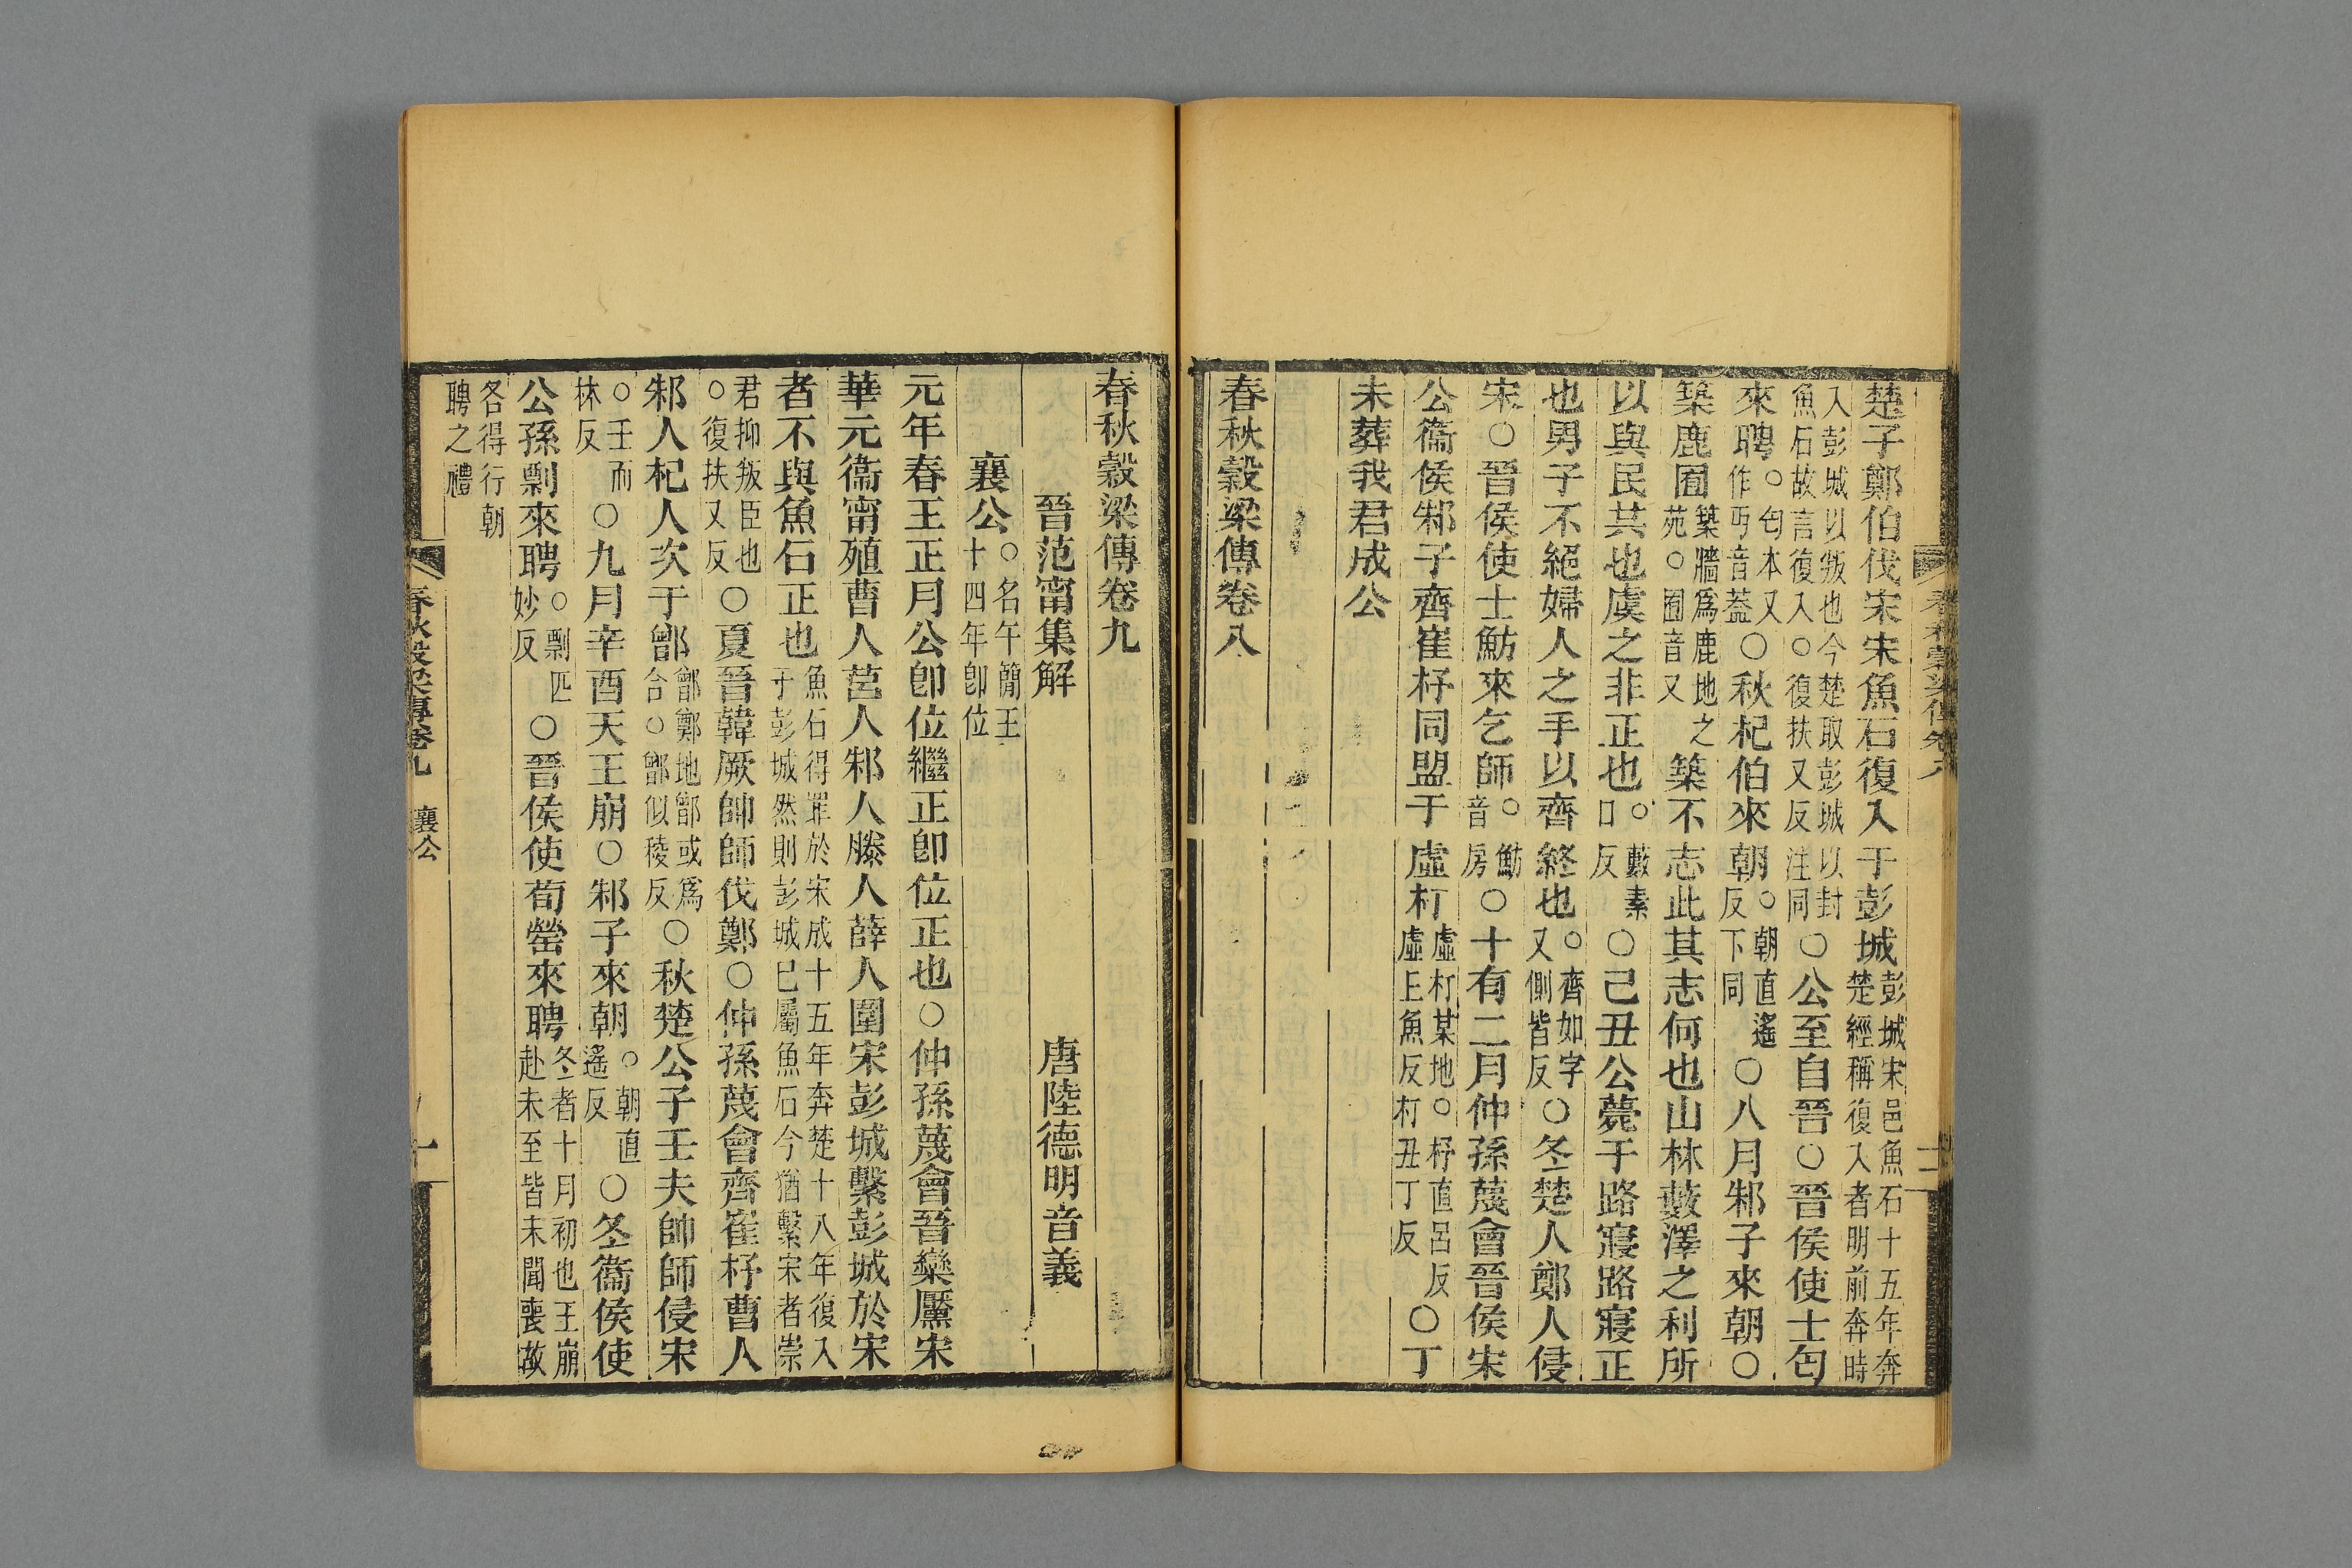 楚子鄭伯伐宋宋魚石復入于彭城彭城宋邑魚石十五年奔楚經稱復入者明前奔時
入彭城以叛也今楚取彭城以封魚石故言復入○復扶又反注同○公至自晉○晉侯使士匄
來聘○匄本又作丐音葢○秋杞伯來朝○朝直遙反下同○八月邾子來朝○
築鹿囿築牆爲鹿地之苑○囿音又築不志此其志何也山林藪澤之利所
以與民共也虞之非正也○藪素口反○己丑公薨于路寢路寢正
也男子不絕婦人之手以齊終也○齊如字又側皆反○冬楚人鄭人侵
宋○晉侯使士魴來乞師○魴音房○十有二月仲孫蔑會晉侯宋
公衞侯邾子齊崔杼同盟于虛朾虛朾某地○杼直呂反虛上魚反朾丑丁反○丁
未葬我君成公
春秋穀梁傳卷八
春秋穀梁傳卷九
晉范甯集解 唐陸德明音義
襄公○名午簡王十四年卽位
元年春王正月公卽位繼正卽位正也○仲孫蔑會晉欒黶宋
華元衞甯殖曹人莒人邾人滕人薛人圍宋彭城繫彭城於宋
者不與魚石正也魚石得罪於宋成十五年奔楚十八年復入于彭城然則彭城已屬魚石今猶繫宋者崇
君抑叛臣也○復扶又反○夏晉韓厥帥師伐鄭○仲孫蔑會齊崔杼曹人
邾人杞人次于鄫鄫鄭地鄫或爲合○鄫似稜反○秋楚公子壬夫帥師侵宋
○壬而林反○九月辛酉天王崩○邾子來朝○朝直遙反○冬衞侯使
公孫剽來聘○剽匹妙反○晉侯使荀罃來聘冬者十月初也王崩赴未至皆未聞喪故
各得行朝聘之禮
春秋穀梁傳卷九 襄公 一